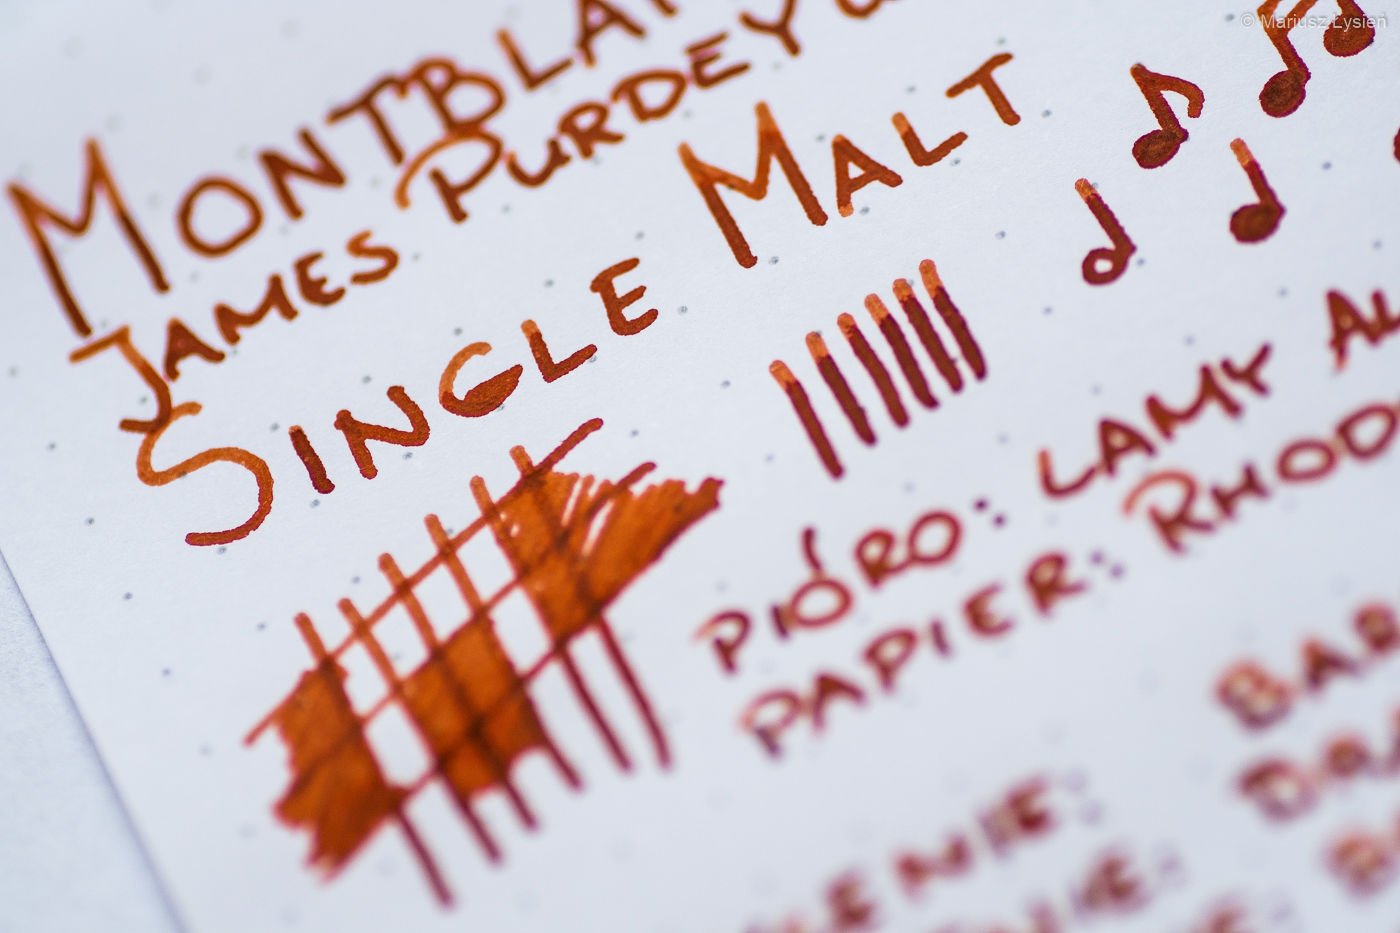 © Mariusz Łysień
MONTBLAN
JAMES PURDEY &
SINGLE MALT
PIÓRO: LAMY AL
PAPIER: RHOD